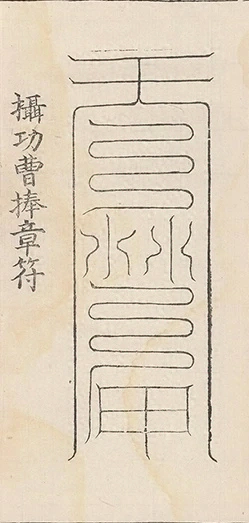 攝功曹捧章符